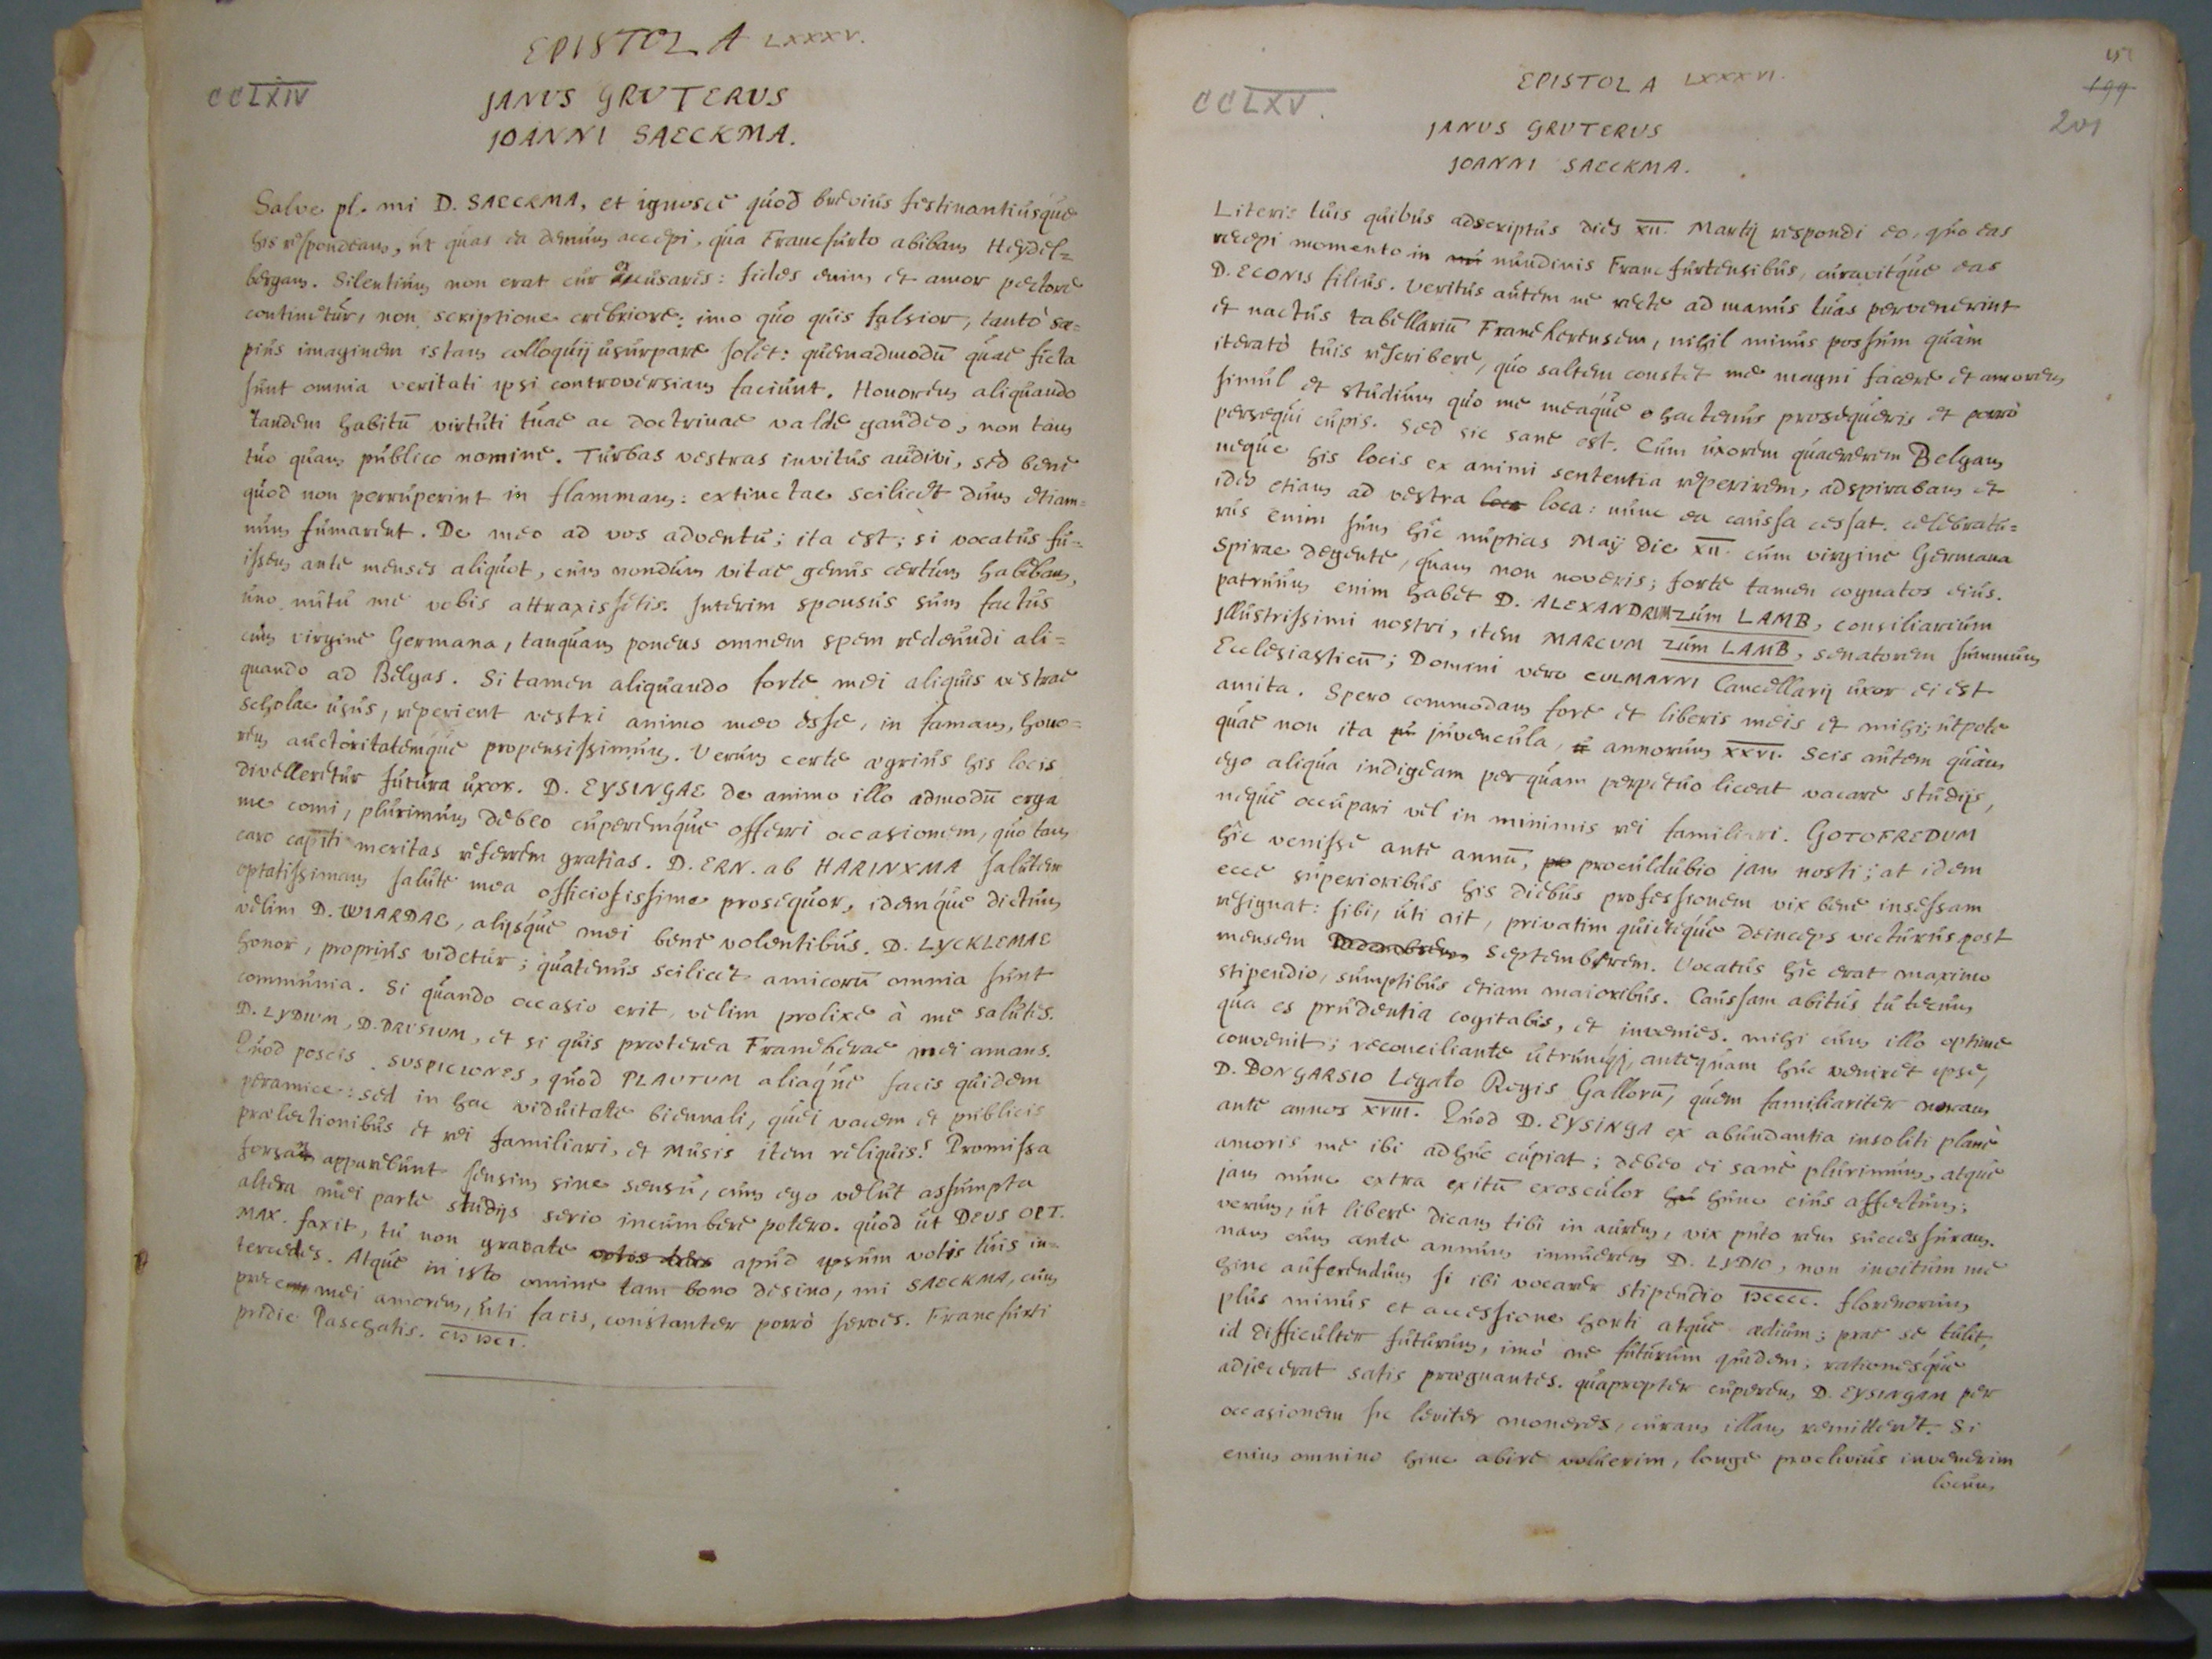 EPISTOLA LXXXV.
CCLXIV
JANUS GRUTERUS
JOANNI SAECKMA.
Salve pl. mi D. SAECKMA, et ignosce quod brevius festinantiusque
his respondeam, ut quas ea demum accepi, qua Francfurto abibam Heydel=
bergam. Silentium non erat cur excusaris: fides enim et amor pectore
continetur, non scriptione crebriore: imo quo quis falsior, tantò sæ=
pius imaginem istam colloquij usurpare solet: quemadmodū quae ficta
sunt omnia veritati ipsi controversiam faciunt. Honorem aliquando
tandem habitū virtuti tuae ac doctrinae valde gaudeo, non tam
tuo quam publico nomine. Turbas vestras invitus audivi, sed bene
quod non perruperint in flammam: extinctae scilicet dum etiam=
num fumarent. De meo ad vos adventu; ita est; si vocatus fu=
issem ante menses aliquot, cum nondum vitae genus certum habebam,
uno nutu me vobis attraxissetis. Interim sponsus sum factus
cum virgine Germana, tanquam ponens omnem spem redeundi ali=
quando ad Belgas. Si tamen aliquando forte mei aliquis vestrae
scholae usus, reperient vestri animo meo esse, in famam, hono=
rem auctoritatemque propensissimum. Verum certe ægrius his locis
divelleretur futura uxor. D. EYSINGAE de animo illo admodū erga
me comi, plurimum debeo cuperemque offerri occasionem, quo tam
caro capiti meritas referrem gratias. D. ERN. ab HARINXMA salutem
optatissimam salute mea officiosissime prosequor, idemque dictum
velim D. WIARDAE, alijsque mei bene volentibus. D. LYCKLEMAE
honor, proprius videtur; quatenus scilicet amicorū omnia sunt
communia. Si quando occasio erit, velim prolixe à me salutes.
D. LYDIUM, D. DRUSIUM, et si quis præterea Franekerae mei amans.
Quod poscis SUSPICIONES, quod PLAUTUM aliaque facis quidem
peramice: sed in hac viduitate biennali, quei vacem et publicis
prælectionibus et rei familiari, et Musis item reliquis! Promissa
forsan apparebunt sensim sine sensu, cum ego velut assumpta
altera mei parte studijs serio incumbere potero. quod ut DEUS OPT.
MAX. faxit, tu non gravate apud ipsum votis tuis in=
tercedes. Atque in isto omine tam bono desino, mi SAECKMA, cum
prece mei amorem, uti facis, constanter porrò serves. Francfurti
pridie Paschatis.
EPISTOLA LXXXVI.
199
201
CCLXV.
JANUS GRUTERUS
JOANNI SAECKMA.
Literis tuis quibus adscriptus dies XII. Martij respondi eo, quo eas
recepi momento in nundinis Francfurtensibus, curavitque eas
D. ECONIS filius. Veritus autem ne recte ad manus tuas pervenerint
et nactus tabellariū Franekerensem, nihil minus possum quàm
iteratò tuis rescribere, quo saltem constet me magni facere et amorem
simul et studium quo me meaque hactenus prosequeris et porrò
persequi cupis. Sed sic sane est. Cum uxorem quaererem Belgam
neque his locis ex animi sententia reperirem, adspirabam et
ideo etiam ad vestra loca loca: nunc ea caussa cessat. celebratu=
rus enim sum hîc nuptias Maij die XII. cum virgine Germana
Spirae degente, quam non noveris; forte tamen cognatos eius.
patruum enim habet D. ALEXANDRUM zum LAMB, consiliarium
Illustrissimi nostri, item MARCUM zum LAMB, senatorem summum
Ecclesiasticū; Domini vero CULMANNI Cancellarij uxor ei est
amita. Spero commodam fore et liberis meis et mihi; utpote
quae non ita juvencula, annorum XXVI. Scis autem quàm
ego aliqua indigeam per quam perpetuo liceat vacare studijs,
neque occupari vel in minimis rei familiari. GOTOFREDUM
hîc venisse ante annū, proculdubio jam nosti; at idem
ecce superioribus his diebus professionem vix bene insessam
resignat: sibi, uti ait, privatim quieteque deinceps victurus post
mensem Septembrem. Vocatus hîc erat maximo
stipendio, sumptibus etiam maioribus. Caussam abitus tu tecum
qua es prudentia cogitabis, et invenies. mihi cum illo optime
convenit; reconciliante utrumq;, antequam huc veniret ipse,
D. BONGARSIO Legato Regis Gallorū, quem familiariter noram
ante annos XVIII. Quod D. EYSINGA ex abundantia insoliti planè
amoris me ibi adhuc cupiat; debeo ei sanè plurimum, atque
jam nunc extra exitū exosculor hunc eius affectum;
verum, ut libere dicam tibi in aurem, vix puto rem successuram.
nam cum ante annum innuerem D. LYDIO, non invitum me
hinc auferendum si ibi vocarer stipendio florenorum
plus minus et accessione horti atque ædium; præ se tulit,
id difficulter futurum, imò ne futurum quidem; rationesque
adjecerat satis prægnantes. quapropter cuperem D. EYSINGAM per
occasionem sic leviter moneres, curam illam remitteret. Si
enim omnino hinc abire voluerim, longe proclivius invenerim
locum